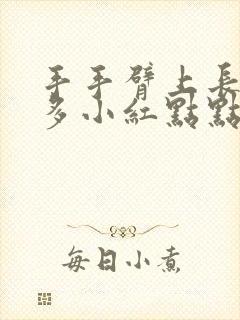 手手臂上長
多小紅點點
每日小煮